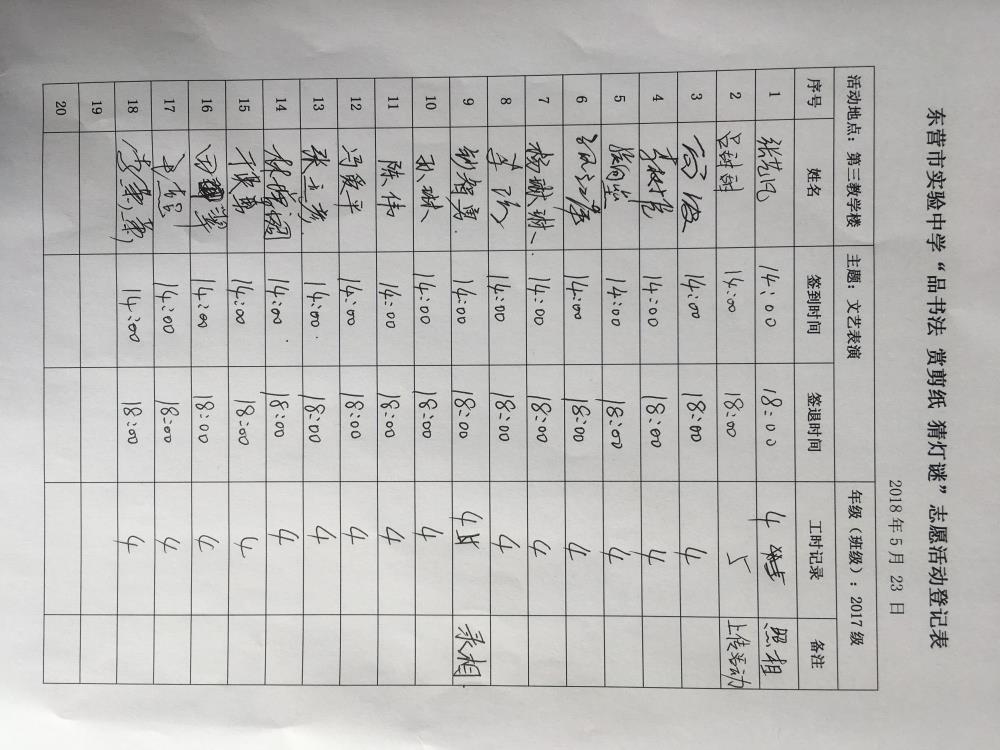 东营市实验中学“品书法 赏剪纸 猜灯谜”志愿活动登记表
2018年5月 23 日
活动地点：第三教学楼 主题：文艺表演 年级（班级）：2017级
序号 姓名 签到时间 签退时间 工时记录 备注
1 14:00 18:00 4 照相
2 14:00 18:00 5 上传活动
3 14:00 18:00 4
4 14:00 18:00 4
5 14:00 18:00 4
6 14:00 18:00 4
7 杨琳琳 14:00 18:00 4
8 14:00 18:00 4
9 刘智勇 14:00 18:00 4 录相
10 孙琳 14:00 18:00 4
11 陈伟 14:00 18:00 4
12 冯爱平 14:00 18:00 4
13 张立彦 14:00 18:00 4
14 14:00 18:00 4
15 14:00 18:00 4
16 14:00 18:00 4
17 14:00 18:00 4
18 14:00 18:00 4
19
20